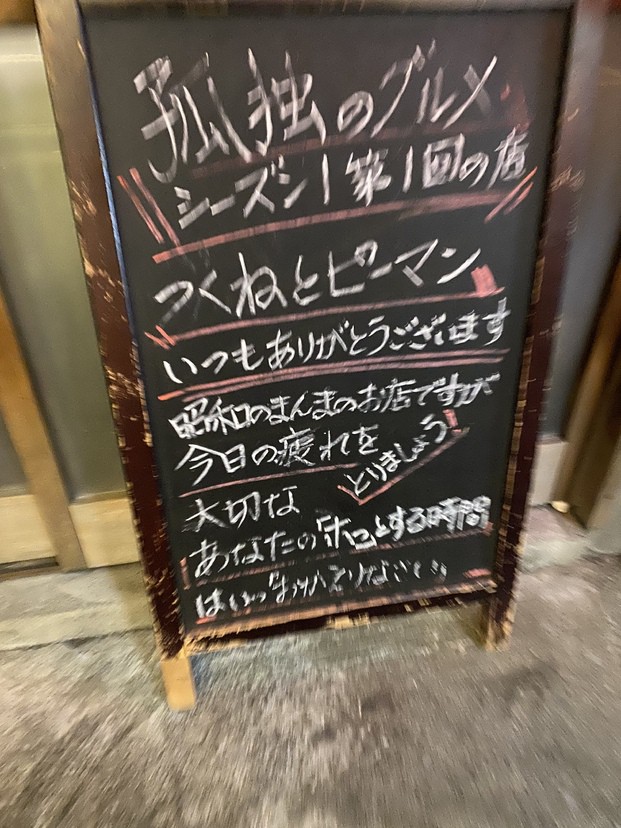 孤独のグルメ
シーズン1第1回の店
つくねとピーマン
いつもありがとうございます
昭和のまんまのお店ですが
今日の疲れを
とりましょう!
大切な
あなたの「ホッ」とする時間
はいっ"おかえりなさい"